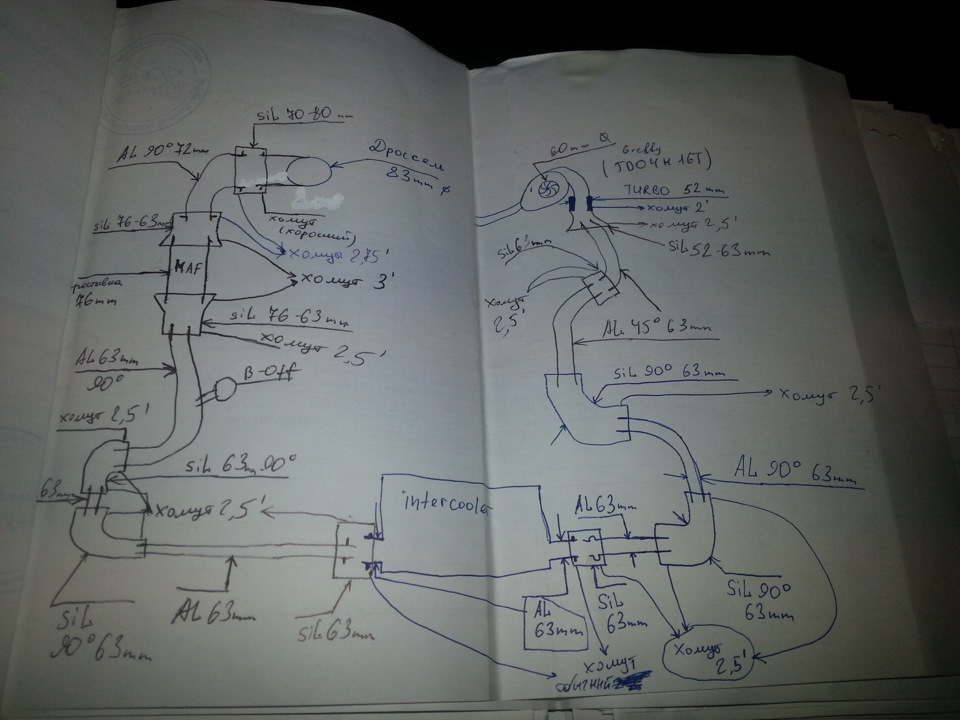 sil 70-80 mm
AL 90° 72mm
Дроссель
83mm ø
sil 76-63mm
хомут
(хороший)
хомут 2,75'
MAF
хомут 3'
76mm
sil 76-63mm
хомут 2,5'
AL 63mm
90°
B-Off
хомут 2,5'
siL 63mm 90°
63mm
хомут 2,5'
intercooler
SiL
90° 63mm
AL 63mm
SiL 63mm
60mm
(TD04H 16T)
TURBO 52mm
хомут 2'
хомут 2,5'
SiL 52-63mm
sil 63mm
хомут
2,5'
AL 45° 63mm
SiL 90° 63mm
хомут 2,5'
AL 90° 63mm
AL 63mm
SiL 90°
63mm
AL
63mm
SiL
63mm
хомут
2,5'
хомут